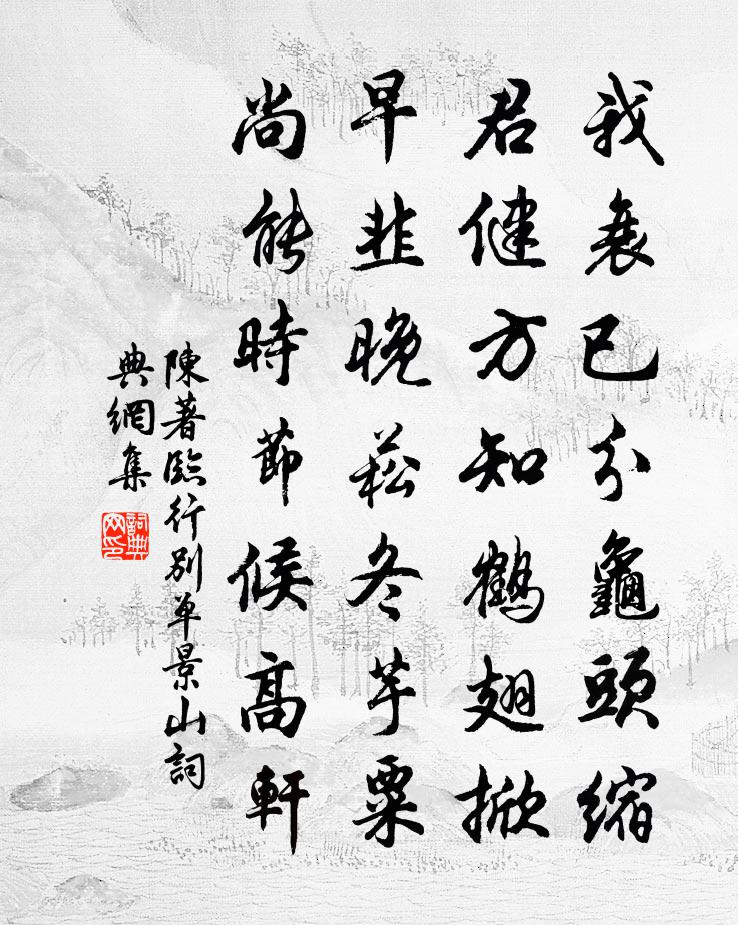 我衰已分龜頭縮
君健方知鶴翅掀
早韭晚菘冬芋粟
尚能時節候高軒
陳著臨行別單景山詞
典網集
詞典
网印